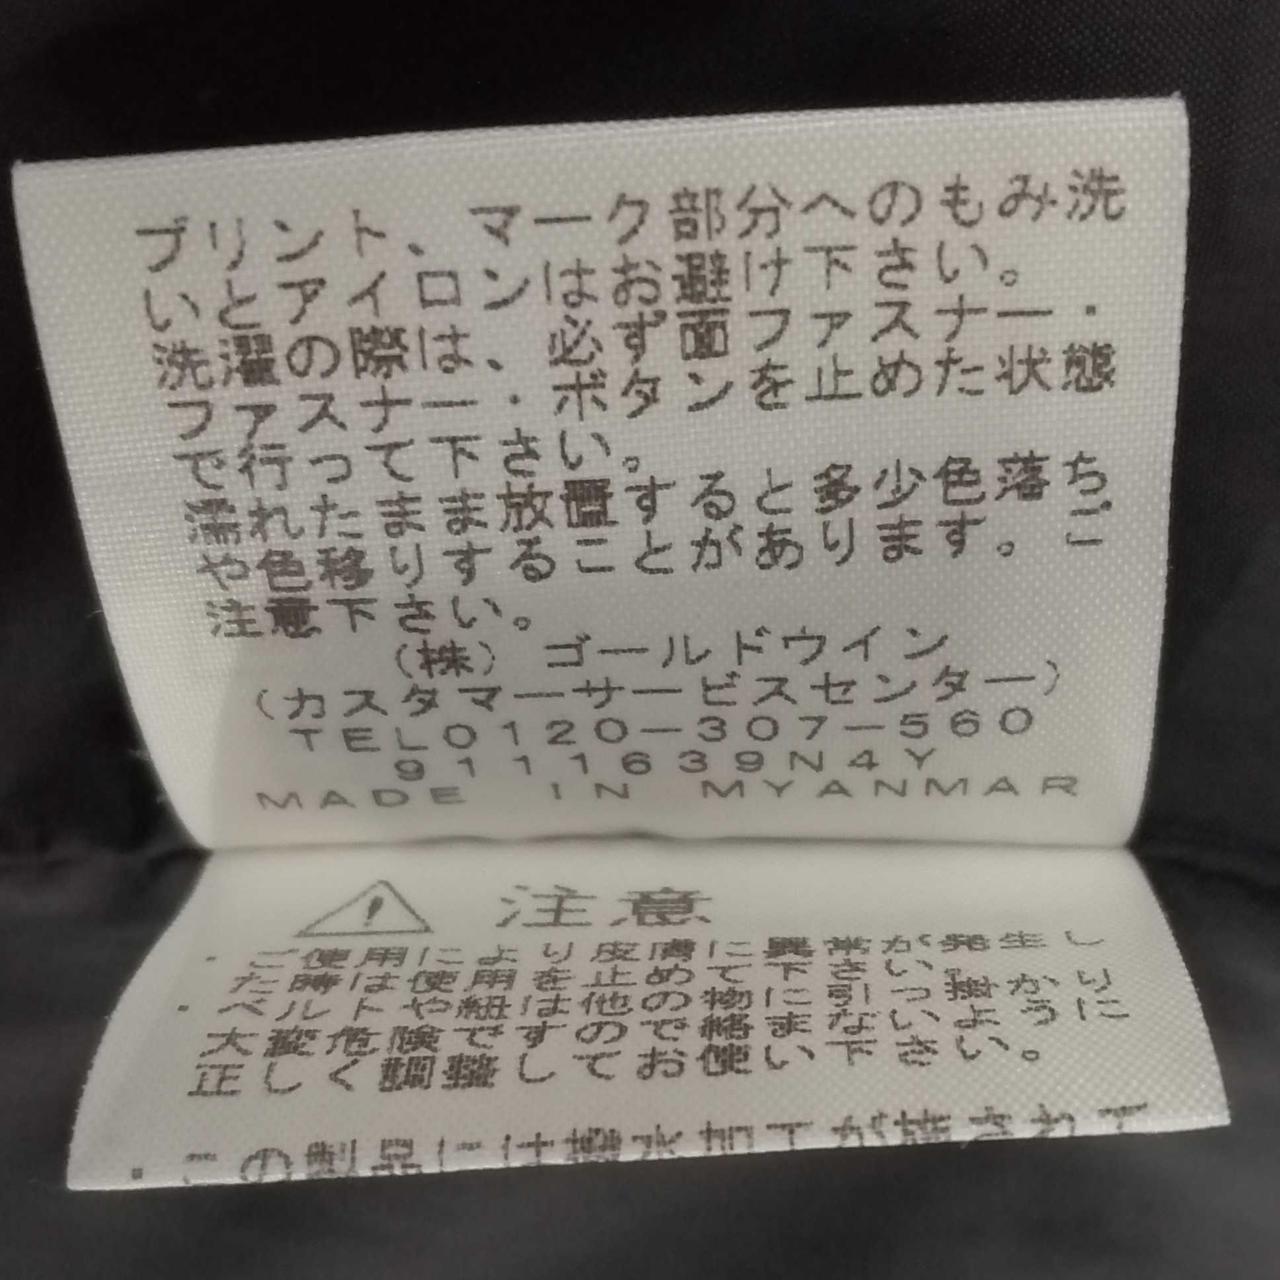 プリント、マーク部分へのもみ洗
いとアイロンはお避け下さい。
洗濯の際は、必ず面ファスナー・
ファスナー・ボタンを止めた状態
で行って下さい。
濡れたまま放置すると多少色落ち
や色移りすることがあります。ご
注意下さい。
(株) ゴールドウイン
(カスタマーサービスセンター)
TEL0120-307-560
9111639N4Y
MADE IN MYANMAR
注意
・ご使用により皮膚に異常が発生し
た時は使用を止めて下さい。
・ベルトや紐は他の物に引っ掛かり
大変危険ですので絡まないように
正しく調整してお使い下さい。
・この製品には撥水加工が施されて